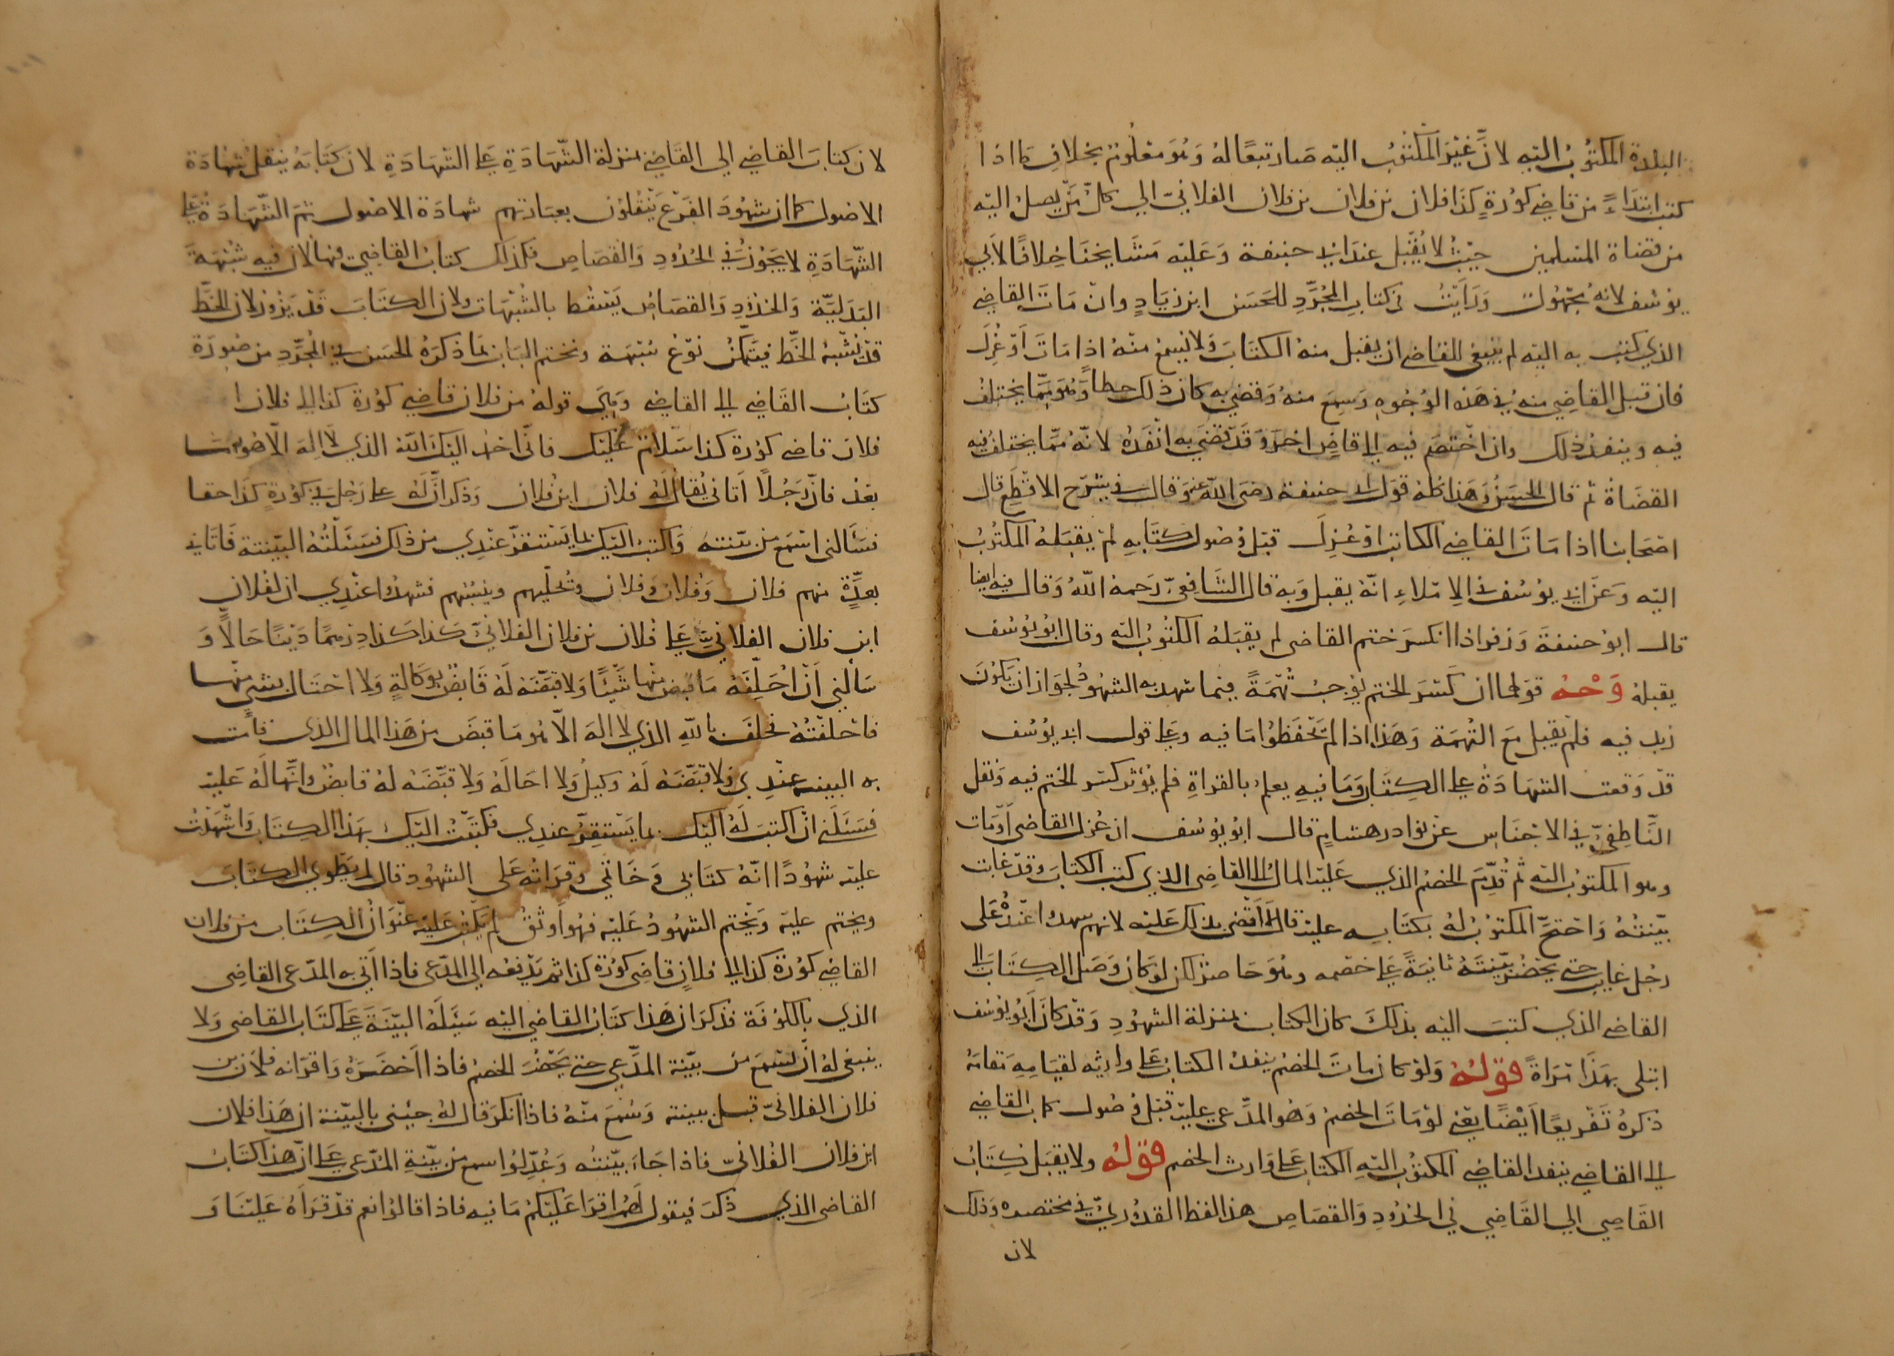 البلدة المكتوب اليه لان غير المكتوب اليه صار تبعا له وهو معلوم بخلاف ما اذا
كتب ابتداء من قاضي كورة كذا فلان بن فلان بن فلان الفلاني الى كل من يصل اليه
من قضاة المسلمين حيث لا يقبل عند ابي حنيفة وعليه مشايخنا خلافا لابي
يوسف لانه مجهول ورايت في كتاب المجرد للحسن ابن زياد وان مات القاضي
الذي كتب به اليه لم ينبغي للقاضي ان يقبل منه الكتاب ولا يسمع منه اذا مات او عزل
فان قبل القاضي منه في هذه الوجوه وسمع منه وقضى به كان ذلك خطأ وهو مما يختلف
فيه وينفذ ذلك وان اختصم فيه الى قاض اخر وقد قضى به انفذه لانه مما يختلف فيه
القضاة ثم قال الحسن وهذا كله قول ابي حنيفة رضي الله عنه وقال في شرح الاقطع قال
اصحابنا اذا مات القاضي الكاتب او عزل قبل وصول كتابه لم يقبله المكتوب
اليه وعن ابي يوسف في الاملاء انه يقبل وبه قال الشافعي رحمه الله وقال فيه ايضا
قال ابو حنيفة وزفر اذا انكسر ختم القاضي لم يقبله المكتوب اليه وقال ابو يوسف
يقبله وجه قولهما ان كسر الختم يوجب تهمة فيما شهد به الشهود لجواز ان يكون
زيد فيه فلم يقبل مع التهمة وهذا اذا لم يحفظوا ما فيه وعلى قول ابي يوسف
قد وقعت الشهادة على الكتاب وما فيه يعلم بالقراة فلم يؤثر كسر الختم فيه ونقل
الناطفي في الاجناس عن نوادر هشام قال ابو يوسف ان عزل القاضي او مات
وهو المكتوب اليه ثم قدم الخصم الذي عليه المال الى القاضي الذي كتب الكتاب وقد غابت
بينته واحتج المكتوب له بكتابه عليه قال لا اقضي بذلك عليه لانهم شهدوا عنده على
رجل غايب حتى يحضر بينته ثانية على خصمه وهو حاضر كان لو كان وصل الكتاب الى
القاضي الذي كتب اليه بذلك كان الكتاب بمنزلة الشهود وقد كان ابو يوسف
ابتلي بهذا مراة قوله ولو كان مات الخصم ينفذ الكتاب على وارثه لقيامه مقامه
ذكره تفريعا ايضا يعني لو مات الخصم وهو المدعي عليه قبل وصول كتاب القاضي
الى القاضي ينفذ القاضي المكتوب اليه الكتاب على وارث الخصم قوله ولا يقبل كتاب
القاضي الى القاضي في الحدود والقصاص هذا لفظ القدوري في مختصره وذلك
لان
لان كتاب القاضي الى القاضي بمنزلة الشهادة على الشهادة لان كتابه ينقل شهادة
الاصول كما ان شهود الفرع ينقلون بعبارتهم شهادة الاصول ثم الشهادة على
الشهادة لا يجوز في الحدود والقصاص فكذلك كتاب القاضي فيهما لان فيه شبهة
البدلية والحدود والقصاص يسقط بالشبهات ولان الكتاب قد يزور لان الخط
قد يشبه الخط فيتمكن نوع شبهة ونختم الباب بما ذكره الحسن في المجرد من صورة
كتاب القاضي الى القاضي وهي قوله من فلان قاضي كورة كذا الى فلان
فلان قاضي كورة كذا سلام عليك فاني احمد اليك الله الذي لا اله الا هو
بعد فان رجلا اتاني يقال له فلان ابن فلان وذكر ان له على رجل في كورة كذا حقا
فسالني اسمع من بينته واكتب اليك بما يستقر عندي من ذلك فسئلته البينة فاتاني
بعدة منهم فلان وفلان وفلان وتحليهم وينسبهم فشهدوا عندي ان لفلان
ابن فلان الفلاني على فلان بن فلان الفلاني كذا كذا درهما دينا حالا و
سالني ان احلفه ما قبض منها شيئا ولا قبضه له قابض بوكالة ولا احتال بشيء منها
فاحلفته فحلف بالله الذي لا اله الا هو ما قبض من هذا المال الذي قامت
به البينة عندي ولا قبضه له وكيل ولا احاله ولا قبضه له قابض وانها له عليه
فسئلني ان اكتب له اليك بما يستقر عندي فكتبت اليك بهذا الكتاب واشهدت
عليه شهودا انه كتابي وخاتمي وقراته على الشهود قال ثم يطوي الكتاب
ويختم عليه ويختم الشهود عليه فهو اوثق ثم يكتب عليه عنوان الكتاب من فلان
القاضي كورة كذا الى فلان قاضي كورة كذا ثم يدفعه الى المدعي فاذا اتى به المدعي القاضي
الذي بالكوفة فذكر ان هذا كتاب القاضي اليه سئله البينة على كتاب القاضي ولا
ينبغي له ان يسمع من بينة المدعي حتى يحضر الخصم فاذا احضره واقر انه فلان بن
فلان الفلاني قبل بينته وسمع منه فاذا انكر قال له جيئني بالبينة ان هذا فلان
ابن فلان الفلاني فاذا جاء ببينته وعدلوا سمع من بينة المدعي على ان هذا كتاب
القاضي الذي ذكر فيقول لهم اقرا عليكم ما فيه فاذا قالوا نعم قد قراه علينا و